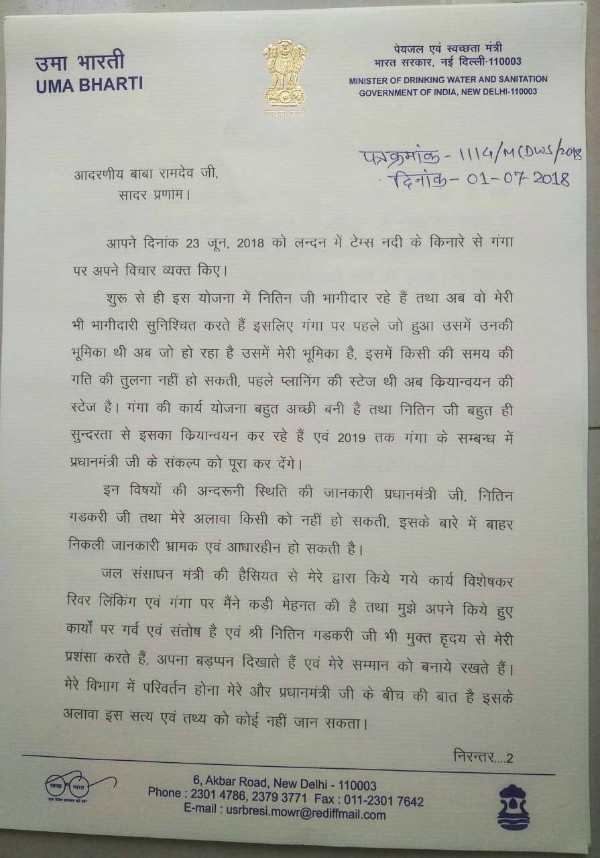 उमा भारती
UMA BHARTI
पेयजल एवं स्वच्छता मंत्री
भारत सरकार, नई दिल्ली-110003
MINISTER OF DRINKING WATER AND SANITATION
GOVERNMENT OF INDIA, NEW DELHI-110003
पत्रक्रमांक - 1114/MCDWS/2018
दिनांक - 01-07-2018
आदरणीय बाबा रामदेव जी,
सादर प्रणाम।
आपने दिनांक 23 जून, 2018 को लन्दन में टेम्स नदी के किनारे से गंगा
पर अपने विचार व्यक्त किए।
शुरू से ही इस योजना में नितिन जी भागीदार रहे हैं तथा अब वो मेरी
भी भागीदारी सुनिश्चित करते हैं इसलिए गंगा पर पहले जो हुआ उसमें उनकी
भूमिका थी अब जो हो रहा है उसमें मेरी भूमिका है, इसमें किसी की समय की
गति की तुलना नहीं हो सकती, पहले प्लानिंग की स्टेज थी अब क्रियान्वयन की
स्टेज है। गंगा की कार्य योजना बहुत अच्छी बनी है तथा नितिन जी बहुत ही
सुन्दरता से इसका क्रियान्वयन कर रहे हैं एवं 2019 तक गंगा के सम्बन्ध में
प्रधानमंत्री जी के संकल्प को पूरा कर देंगे।
इन विषयों की अन्दरूनी स्थिति की जानकारी प्रधानमंत्री जी, नितिन
गडकरी जी तथा मेरे अलावा किसी को नहीं हो सकती, इसके बारे में बाहर
निकली जानकारी भ्रामक एवं आधारहीन हो सकती है।
जल संसाधन मंत्री की हैसियत से मेरे द्वारा किये गये कार्य विशेषकर
रिवर लिंकिंग एवं गंगा पर मैंने कड़ी मेहनत की है तथा मुझे अपने किये हुए
कार्यों पर गर्व एवं संतोष है एवं श्री नितिन गडकरी जी भी मुक्त हृदय से मेरी
प्रशंसा करते हैं, अपना बड़प्पन दिखाते हैं एवं मेरे सम्मान को बनाये रखते हैं।
मेरे विभाग में परिवर्तन होना मेरे और प्रधानमंत्री जी के बीच की बात है इसके
अलावा इस सत्य एवं तथ्य को कोई नहीं जान सकता।
निरन्तर...2
स्वच्छ भारत
6, Akbar Road, New Delhi - 110003
Phone : 2301 4786, 2379 3771 Fax : 011-2301 7642
E-mail : usrbresi.mowr@rediffmail.com